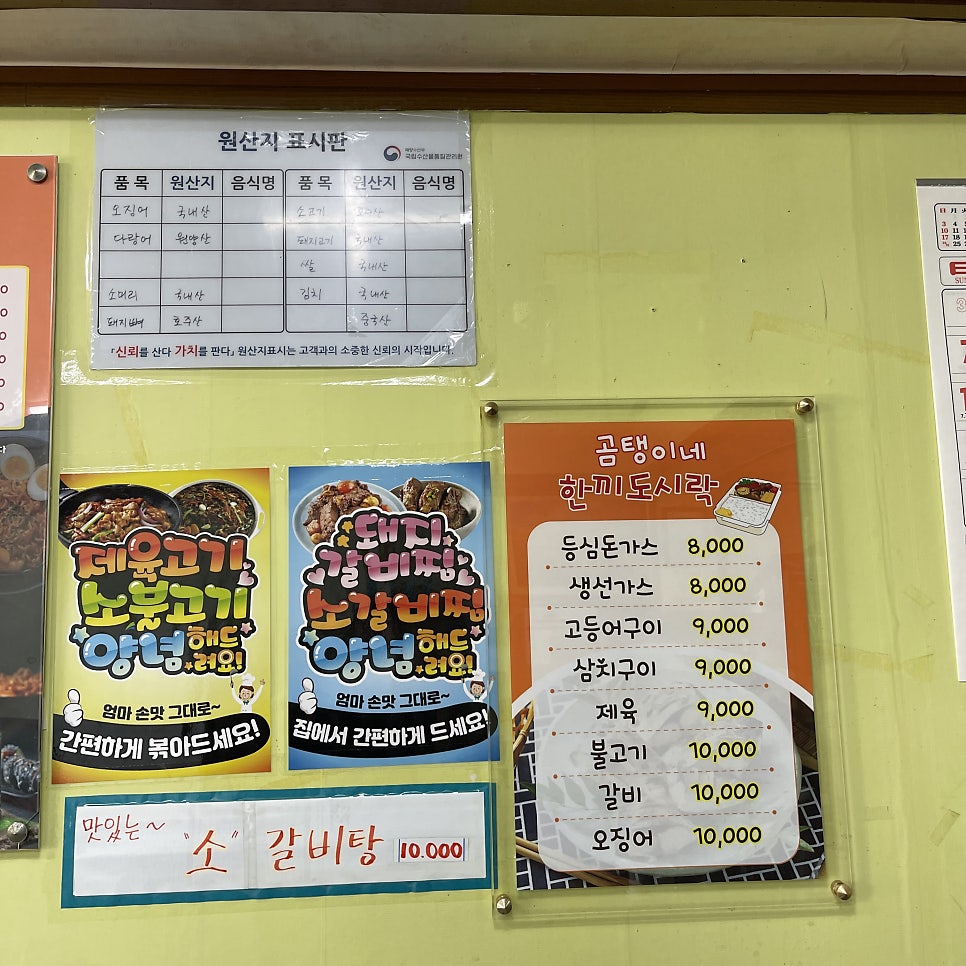 원산지 표시판
해양수산부
국립수산물품질관리원
품 목 원산지 음식명 품 목 원산지 음식명
오징어 국내산 소고기
다랑어 원양산 돼지고기 국내산
쌀 국내산
소머리 국내산 김치 국내산
돼지뼈 호주산 중국산
「신뢰를 산다 가치를 판다」 원산지표시는 고객과의 소중한 신뢰의 시작입니다.
제육고기
소불고기
양념해드려요!
엄마 손맛 그대로~
간편하게 볶아드세요!
돼지
갈비찜
소갈비찜
양념해드려요!
엄마 손맛 그대로~
집에서 간편하게 드세요!
맛있는~ "소" 갈비탕 10.000
곰탱이네
한끼도시락
등심돈가스 8,000
생선가스 8,000
고등어구이 9,000
삼치구이 9,000
제육 9,000
불고기 10,000
갈비 10,000
오징어 10,000
日 月
3 4
10 11
17 18
25
SUN